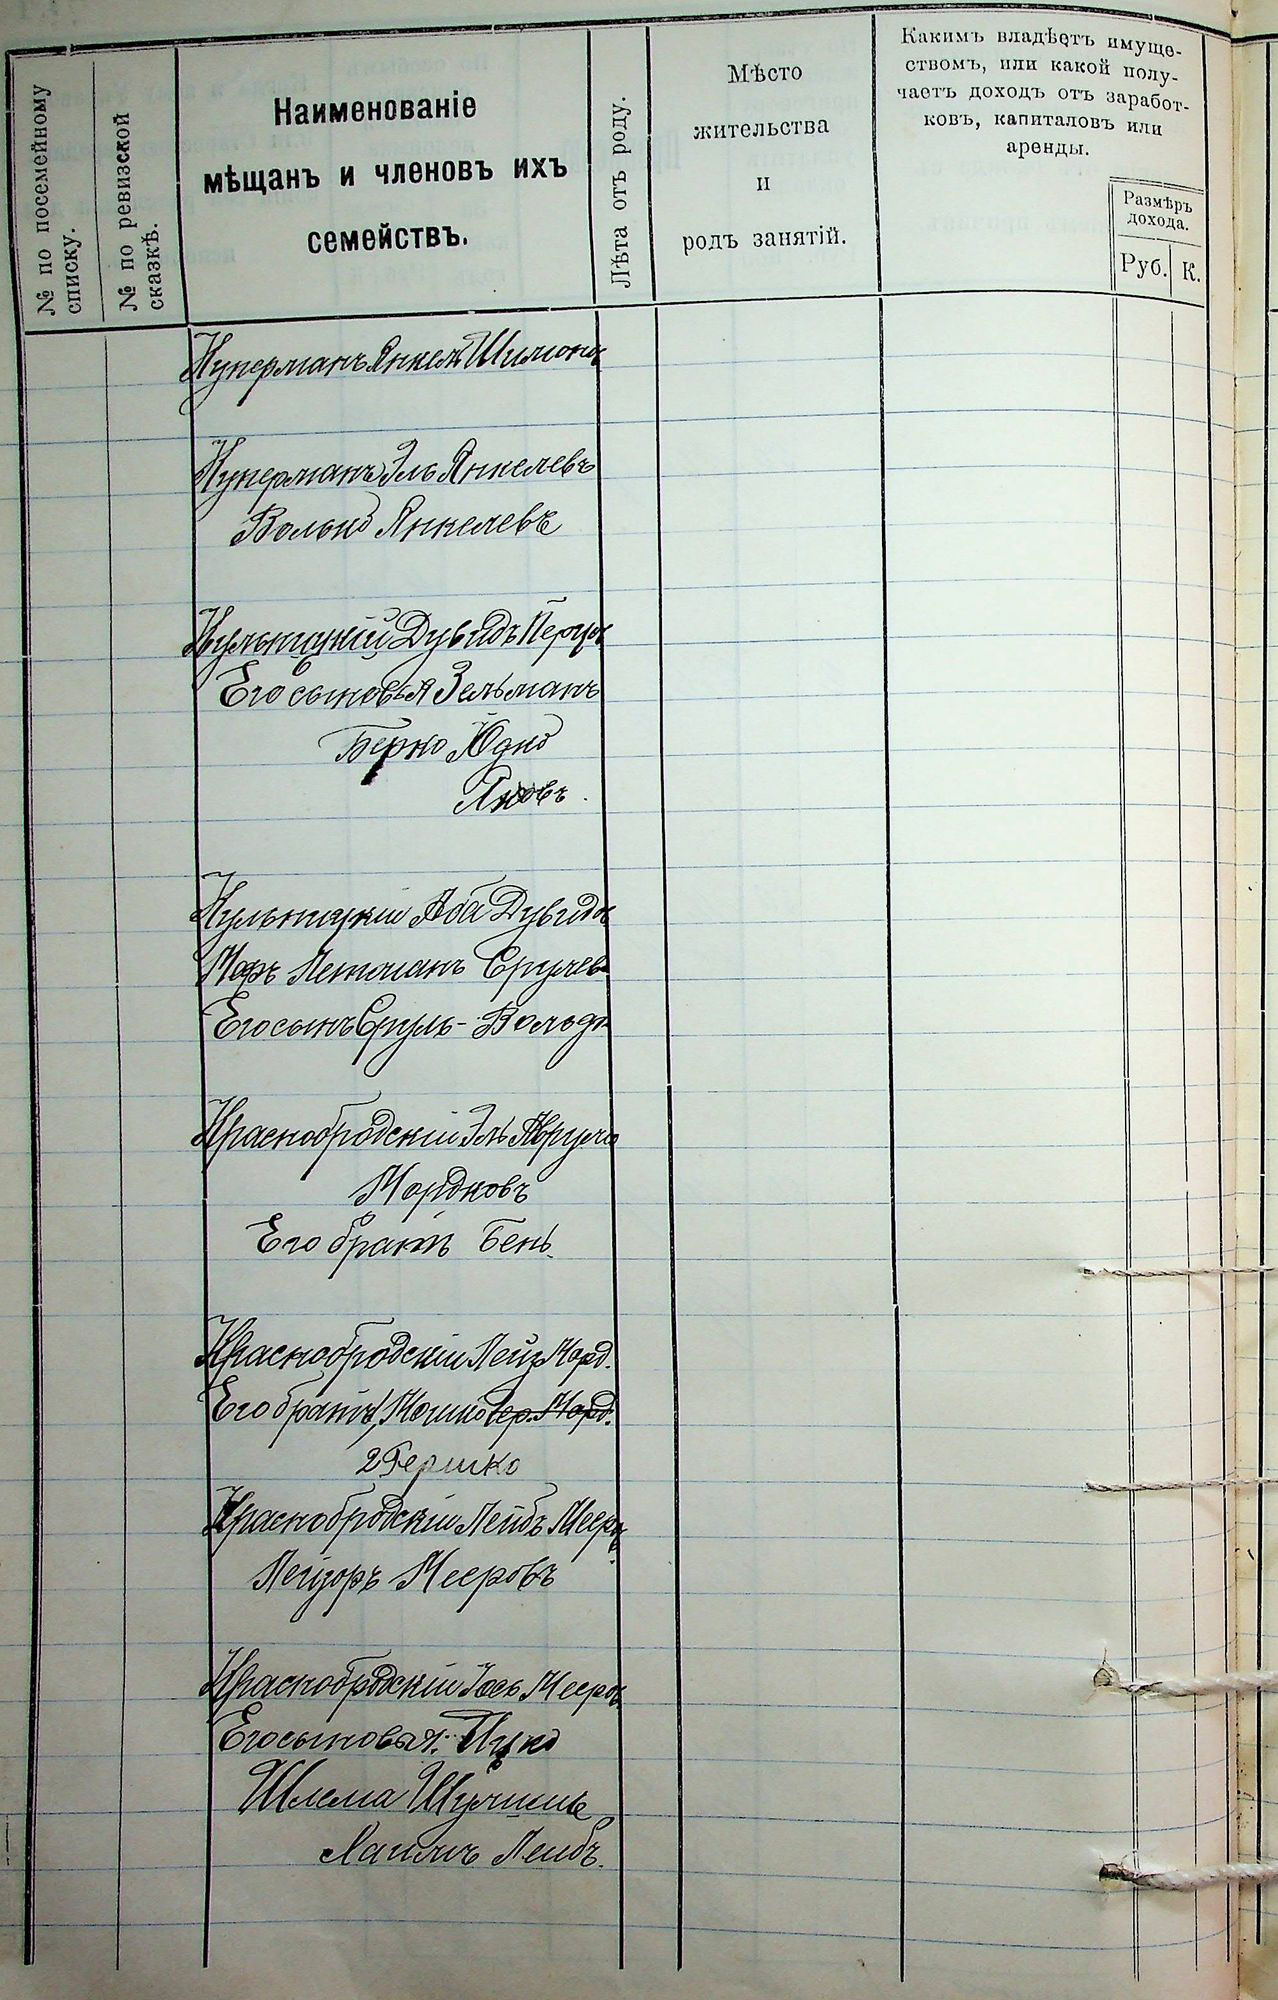 № по посемейному
списку.
№ по ревизской
сказкѣ.
Наименованіе
мѣщанъ и членовъ ихъ
семействъ.
Лѣта отъ роду.
Мѣсто
жительства
и
родъ занятій.
Какимъ владѣетъ имуще-
ствомъ, или какой полу-
чаетъ доходъ отъ заработ-
ковъ, капиталовъ или
аренды.
Размѣръ
дохода.
Руб.
К.
Куперманъ Янкель Шимонъ
Куперманъ Эль Янкелевъ
Волько Янкелевъ
Кульчицкій Дувидъ Перцов
Его сыновья Зельманъ
Берко Юдко
Яновъ.
Кульчицкій Аба Дувидов
Лейзманъ Срулев
Его сынъ Сруль-Вольф
Краснобродскій Эль Аврумъ
Мордковъ
Его братъ Бень.
Краснобродскій Лейз. Морд.
Его братья, Мошко Гер. Морд.
2 Гершко
Краснобродскій Лейбъ Меер.
Лейзоръ Мееровъ
Краснобродскій Іось Мееров.
Его сыновья: Ицко
Шлема Шулимъ
Хаимъ Лейбъ.